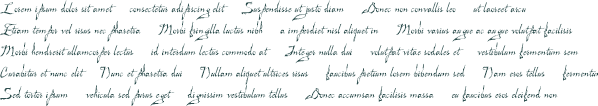 Lorem ipsum dolor sit amet consectetur adipiscing elit Suspendisse ut justo diam Donec non convallis leo ut laoreet arcu
Etiam tempor vel risus nec pharetra Morbi fringilla luctus nibh a imperdiet nisl aliquet in Morbi varius augue ac augue volutpat facilisis
Morbi hendrerit ullamcorper lectus id interdum lectus commodo at Integer nulla dui volutpat vitae sodales et vestibulum fermentum sem
Curabitur et nunc elit Nunc et pharetra dui Nullam aliquet ultrices risus faucibus pretium lorem bibendum sed Nam eros tellus fermentum
Sed tortor ipsum vehicula sed purus eget dignissim vestibulum tellus Donec accumsan facilisis massa eu faucibus eros eleifend non